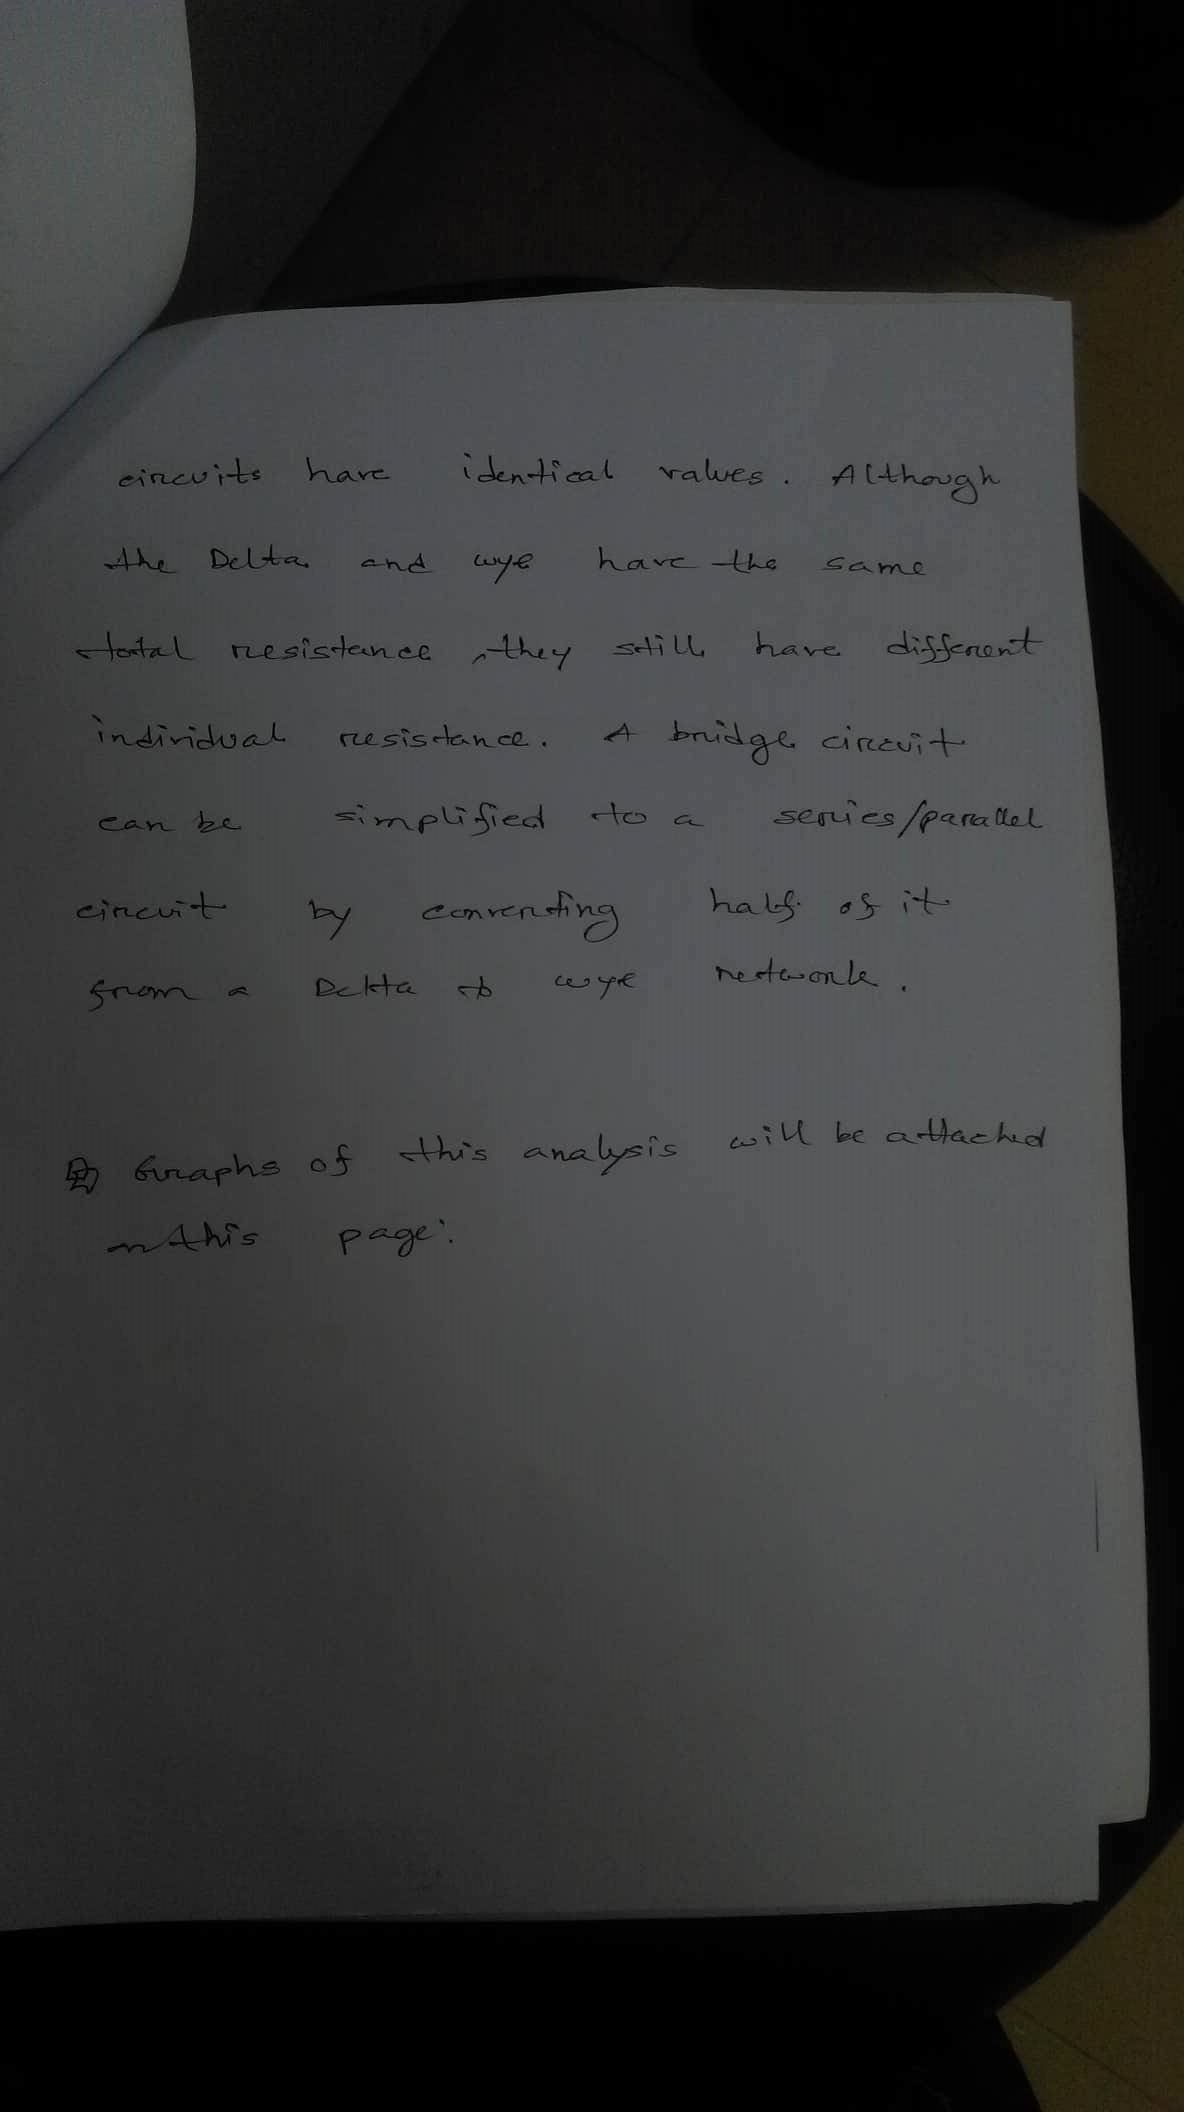 circuits have identical values. Although
the Delta and wye have the same
total resistance, they still have different
individual resistance. A bridge circuit
can be simplified to a series/parallel
circuit by converting half of it
from a Delta to wye network.
Graphs of this analysis will be attached
on this page: